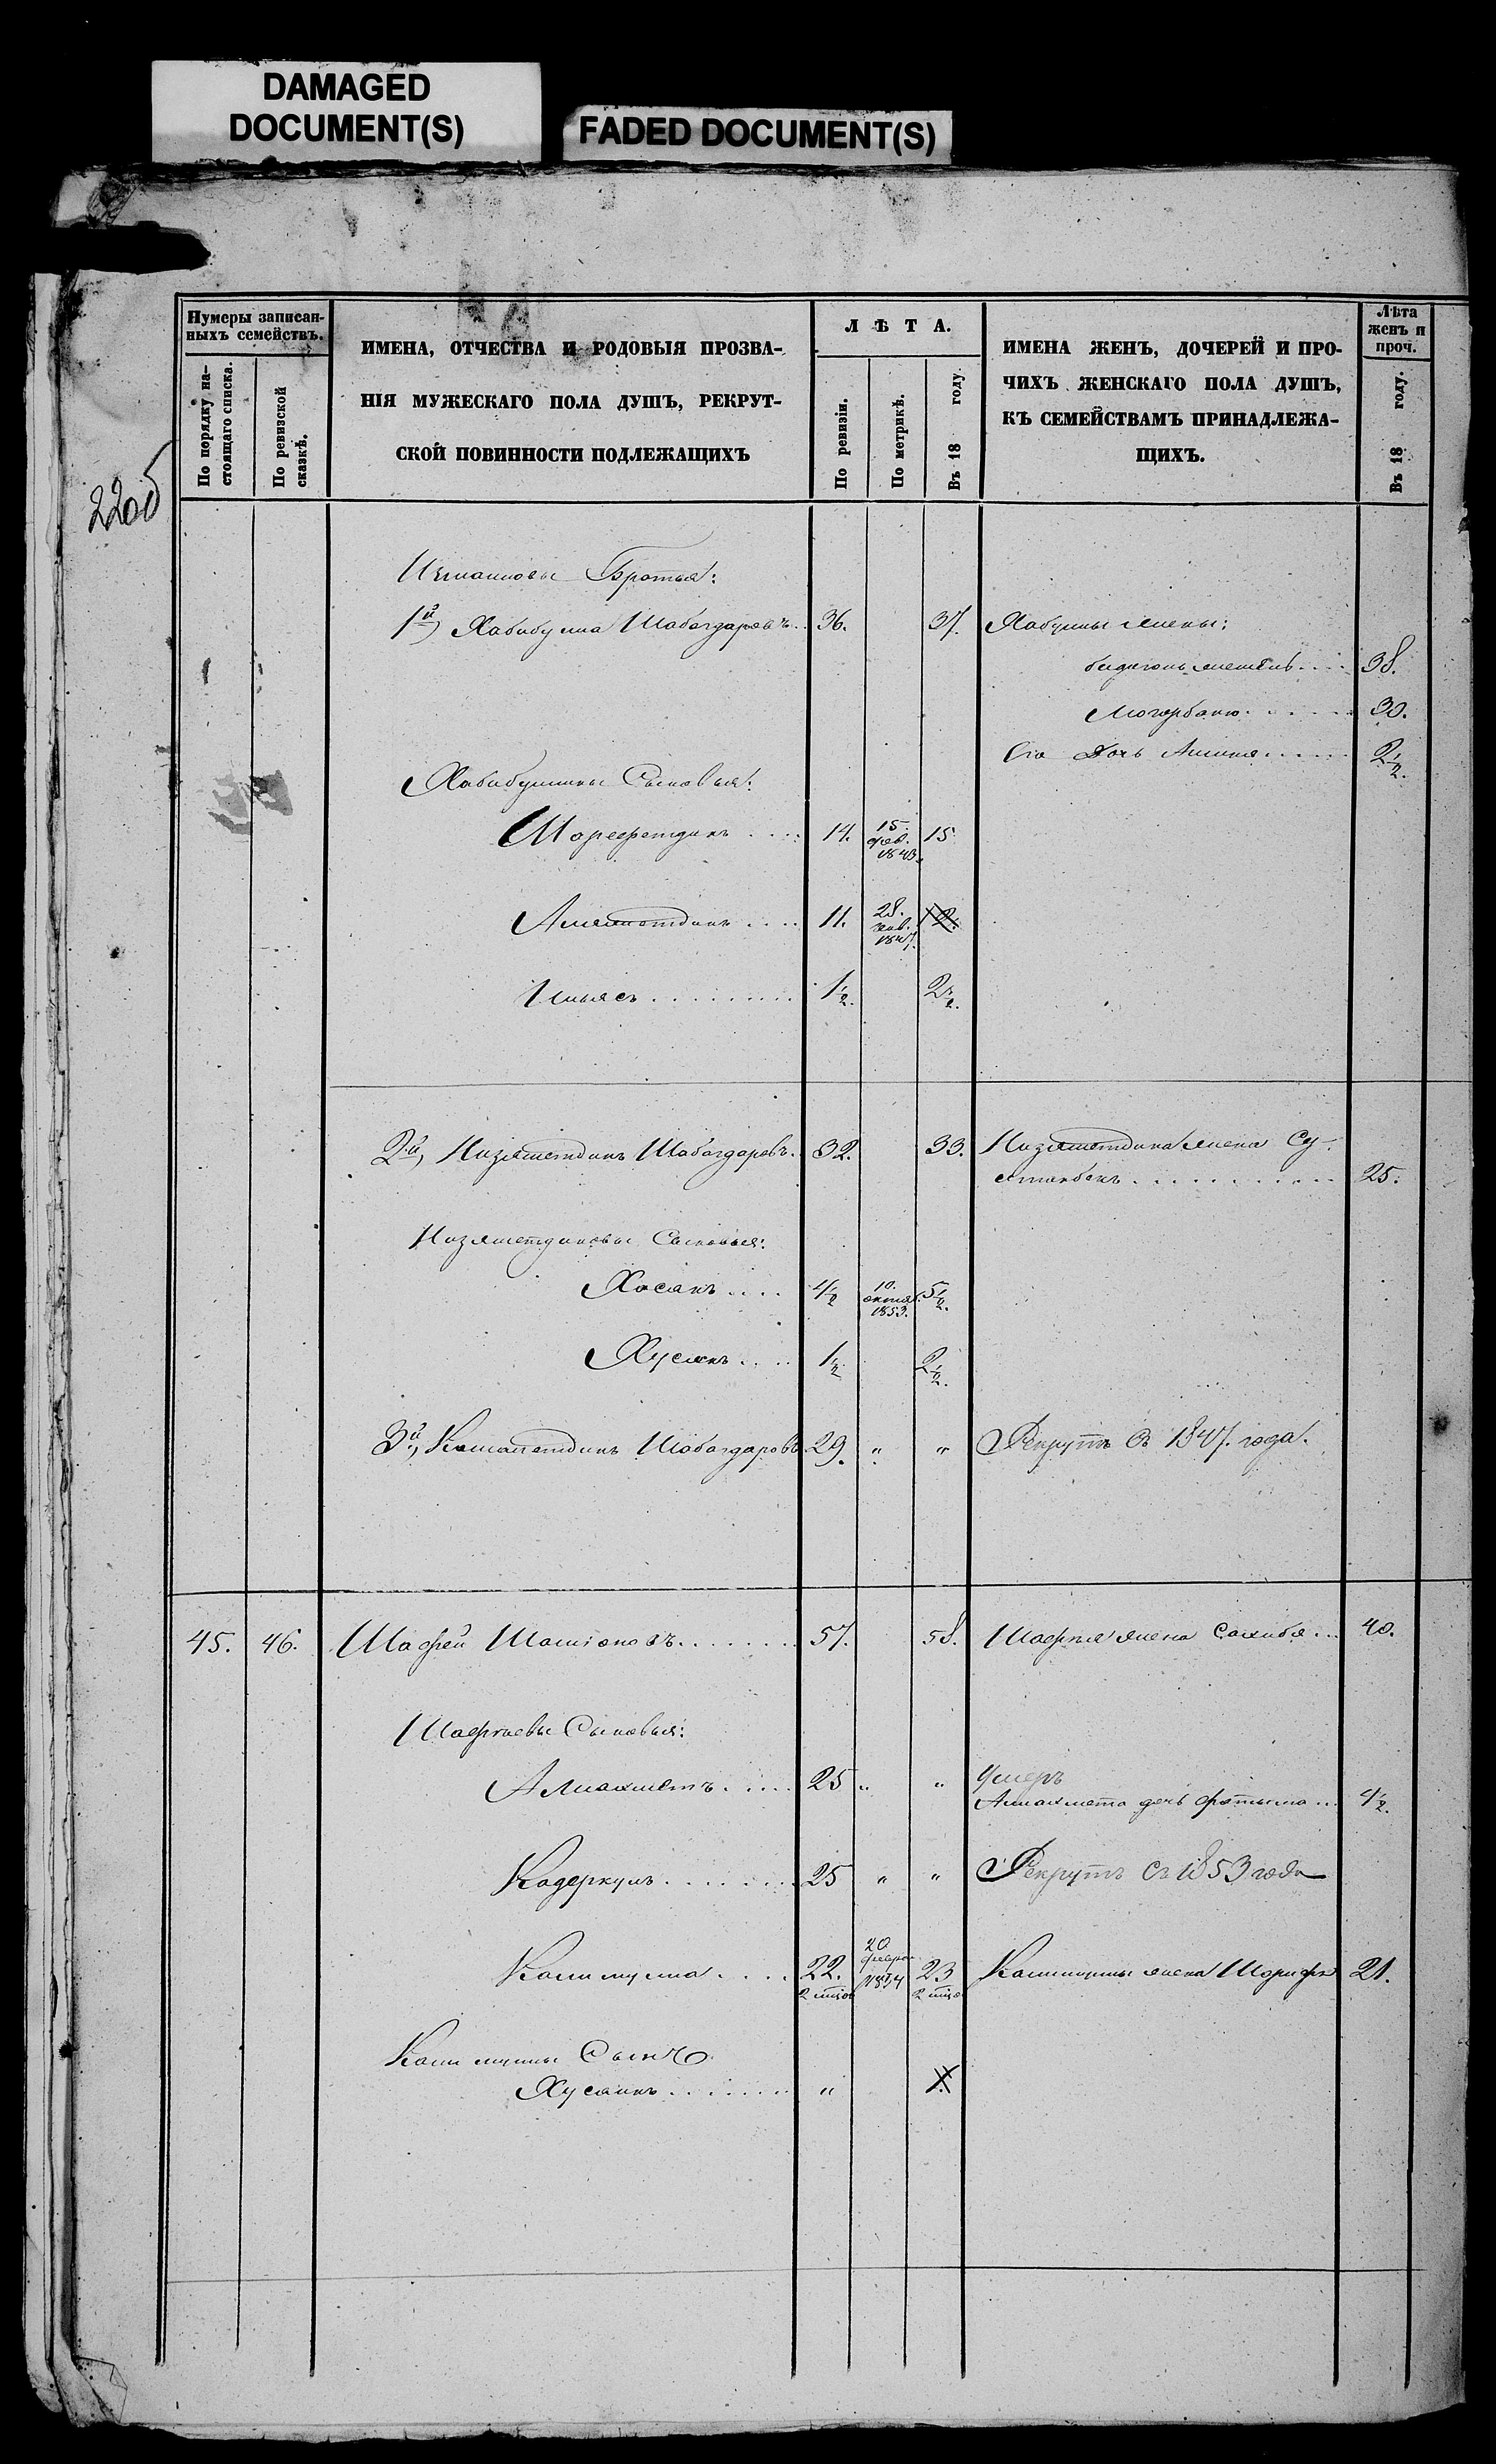 DAMAGED
DOCUMENT(S)
FADED DOCUMENT(S)
220б
Нумеры записан-
ныхъ семействъ.
По порядку на-
стоящаго списка.
По ревизской
сказкѣ.
ИМЕНА, ОТЧЕСТВА И РОДОВЫЯ ПРОЗВА-
НІЯ МУЖЕСКАГО ПОЛА ДУШЪ, РЕКРУТ-
СКОЙ ПОВИННОСТИ ПОДЛЕЖАЩИХЪ
ЛѢТА.
По ревизіи.
По метрикѣ.
Въ 18 году
ИМЕНА ЖЕНЪ, ДОЧЕРЕЙ И ПРО-
ЧИХЪ ЖЕНСКАГО ПОЛА ДУШЪ,
КЪ СЕМЕЙСТВАМЪ ПРИНАДЛЕЖА-
ЩИХЪ.
Лѣта
женъ и
проч.
Въ 18 году.
Братья:
1й, Хабибулла Шабагдаровъ.. 36. 37. Хабуллы жены:
38.
30.
Его дочь 2 1/2.
Хабибуллины Сыновья:
14. 15 фев. 1843. 15
11. 28. 1847. 12.
Ильясъ 1/2. 2 1/2.
2й, Низаметдинъ Шабагдаровъ. 32. 33. Низаметдина жена Су-
25.
Низаметдиновы Сыновья:
Хасанъ 4/2 10. октяб. 1853. 5 1/2.
Хусянъ 1/2 2 1/2.
3й, Камалетдинъ Шабагдаровъ 29. " " Рекрутъ съ 1847. года.
45. 46. Шафѣй 57. 58. Шафѣя жена Сахибя 40.
Шафѣевы Сыновья:
Алиахметъ 25 " " Умеръ
Алиахмета дочь Фатыма 4/2.
Кадеркулъ 25 " " Рекрутъ съ 1853 года
Калимулла 22. 2 мѣся 20 февра 1834 23 2 мѣся Калимуллы жена Шарифа 21.
Калимуллы Сынъ
Хусаинъ " 1.